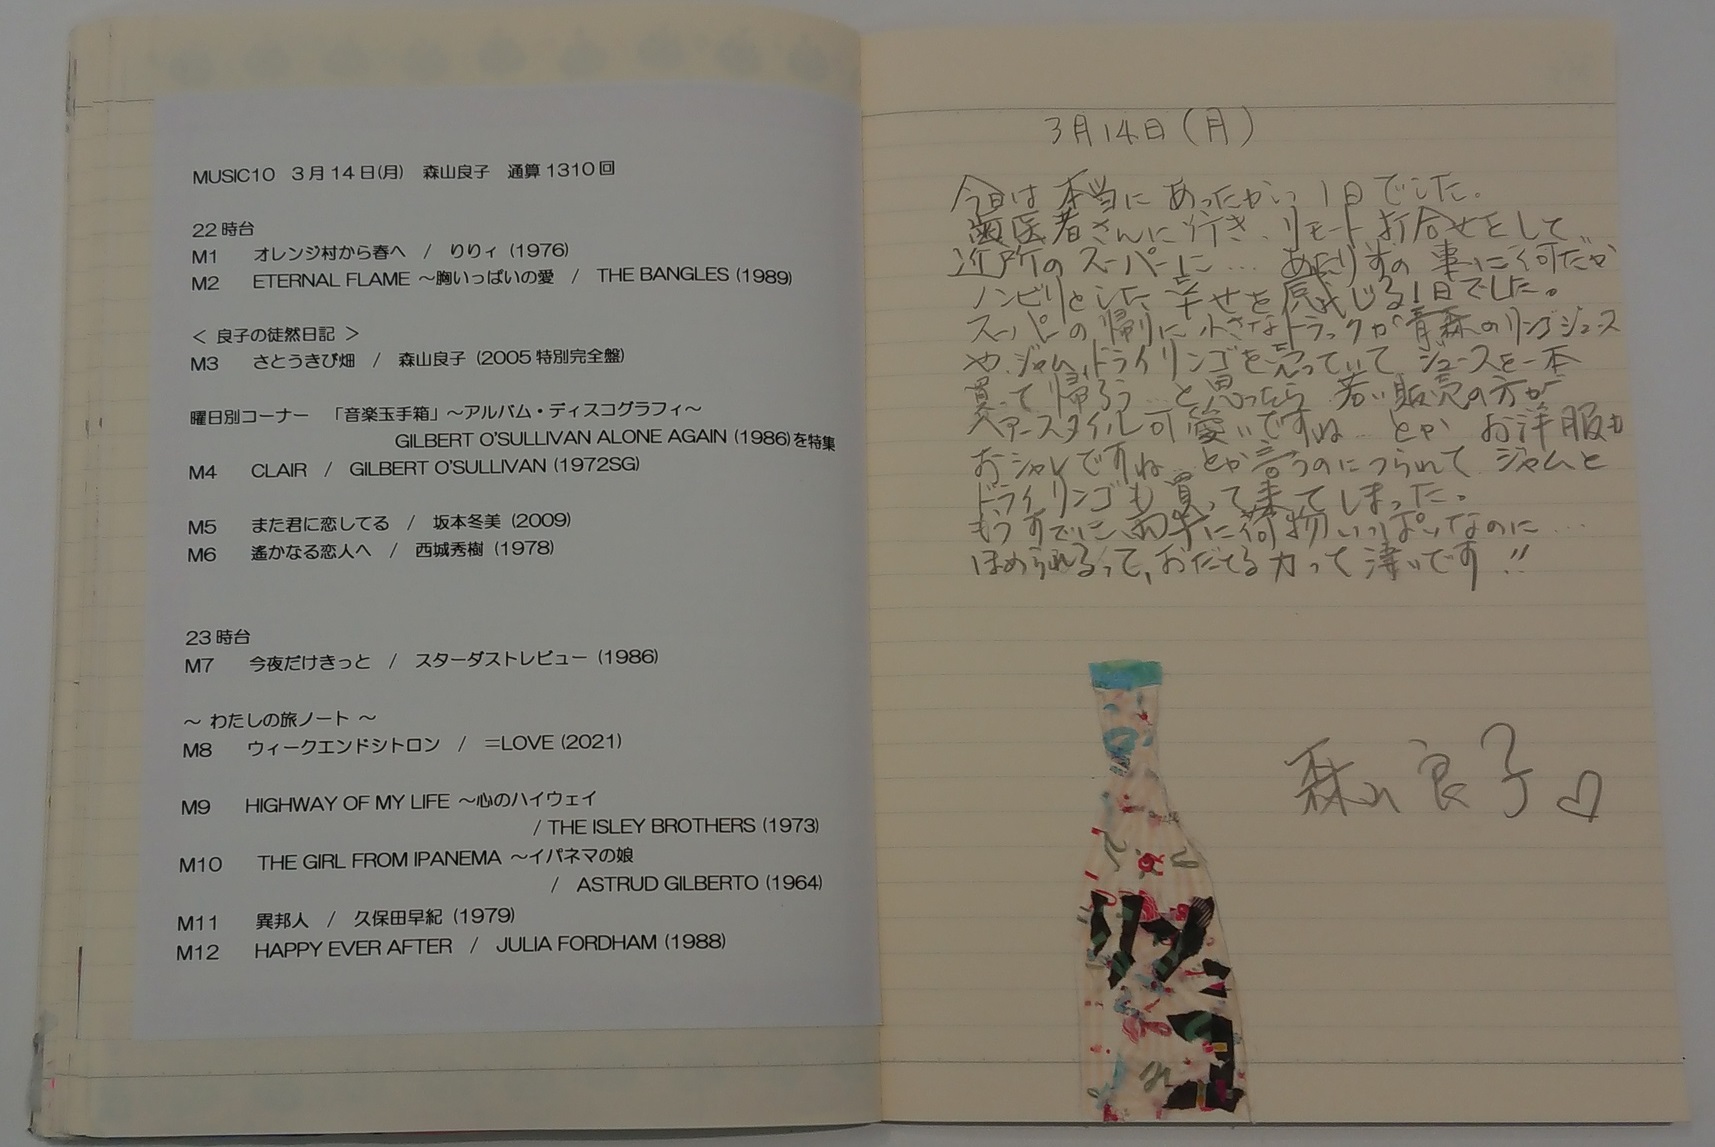 MUSIC10 3月14日(月) 森山良子 通算1310回
22時台
M1 オレンジ村から春へ / りりィ (1976)
M2 ETERNAL FLAME ～胸いっぱいの愛 / THE BANGLES (1989)
< 良子の徒然日記 >
M3 さとうきび畑 / 森山良子 (2005特別完全盤)
曜日別コーナー 「音楽玉手箱」～アルバム・ディスコグラフィ～
GILBERT O'SULLIVAN ALONE AGAIN (1986)を特集
M4 CLAIR / GILBERT O'SULLIVAN (1972SG)
M5 また君に恋してる / 坂本冬美 (2009)
M6 遙かなる恋人へ / 西城秀樹 (1978)
23時台
M7 今夜だけきっと / スターダストレビュー (1986)
～ わたしの旅ノート ～
M8 ウィークエンドシトロン / =LOVE (2021)
M9 HIGHWAY OF MY LIFE ～心のハイウェイ
/ THE ISLEY BROTHERS (1973)
M10 THE GIRL FROM IPANEMA ～イパネマの娘
/ ASTRUD GILBERTO (1964)
M11 異邦人 / 久保田早紀 (1979)
M12 HAPPY EVER AFTER / JULIA FORDHAM (1988)
3月14日(月)
今日は本当にあったかい1日でした。
歯医者さんに行き、リモートお合せをして、
近所のスーパーに… あたり前の事に何だか
ノンビリとした幸せを感じる1日でした。
スーパーの帰りに小さなトラックが青森のリンゴジュース
や、ジャム、ドライリンゴを売っていて ジュースを一本
買って帰ろう…と思ったら 若い販売の方が
ヘアースタイル可愛いですね… とか お洋服も
おシャレですね…とか言うのにつられて ジャムと
ドライリンゴも買って来てしまった。
もうすでに、両手に荷物いっぱいなのに…
ほめられるって、おだてる力って凄いです!!
森山良子♡
リンゴ